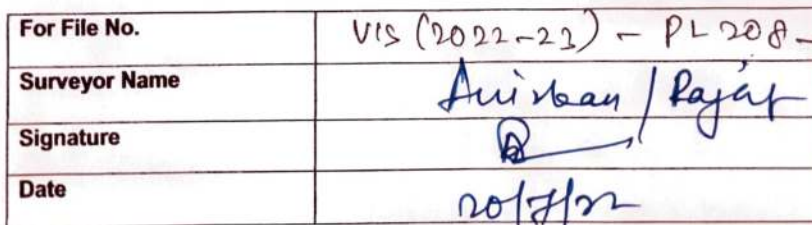 For File No. VIS (2022-23) - PL208-
Surveyor Name Anirban / Rajat
Signature
Date 20/7/22